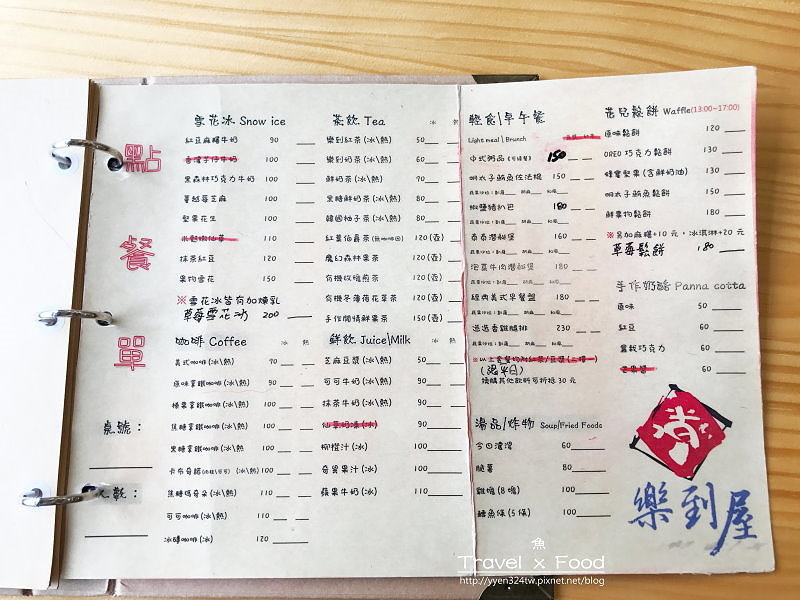 點餐單
桌號：
雪花冰 Snow ice
紅豆麻糬牛奶 90
香濃芋仔牛奶 100
黑森林巧克力牛奶 100
蔓越莓芝麻 100
堅果花生 100
110
抹茶紅豆 120
果物雪花 150
※雪花冰皆有加煉乳
草莓雪花冰 200
咖啡 Coffee 冰 熱
美式咖啡(冰\熱) 70
原味拿鐵咖啡(冰\熱) 90
榛果拿鐵咖啡(冰\熱) 100
焦糖拿鐵咖啡(冰\熱) 100
黑糖拿鐵咖啡(冰\熱 100
卡布奇諾(肉桂\可可)(冰\熱) 100
焦糖瑪奇朵(冰\熱) 110
可可咖啡(冰\熱) 110
冰磚咖啡(冰) 120
茶飲 Tea 冰 熱
樂到紅茶(冰\熱) 50
樂到奶茶(冰\熱) 60
鮮奶茶(冰\熱) 70
黑糖鮮奶茶(冰\熱) 80
韓國柚子茶(冰\熱) 80
紅葉伯爵茶(無咖啡因) 120(壺)
魔幻森林果茶 120(壺)
有機玫瑰煎茶 120(壺)
有機冬薄荷花草茶 120(壺)
手作閒情鮮果茶 150(壺)
鮮飲 Juice\Milk 冰 熱
芝麻豆漿(冰\熱) 50
可可牛奶(冰\熱) 90
抹茶牛奶(冰\熱) 90
仙草奶凍(冰) 90
柳橙汁(冰) 100
奇異果汁(冰) 100
蘋果牛奶(冰) 110
輕食\早午餐
Light meal \ Brunch
中式粥品 150
明太子鮪魚佐法棍 150
椒鹽豬扒巴 180
泰泰潛艇堡 160
泡菜牛肉潛艇堡 180
經典美式早餐盤 180
迷迭香雞腿排 230
※以上套餐均附紅茶/豆漿(二擇一)
(限平日)
換購其他飲料可折抵 30 元
湯品/炸物 Soup/Fried Foods
今日濃湯 60
脆薯 80
雞塊(8塊) 100
鱈魚條(5條) 100
花兒鬆餅 Waffle(13:00~17:00)
原味鬆餅 120
OREO 巧克力鬆餅 130
蜂蜜堅果(含鮮奶油) 130
明太子鮪魚鬆餅 150
鮮果物鬆餅 180
※另加麻糬+10 元，冰淇淋+20 元
草莓鬆餅 180
手作奶酪 Panna cotta
原味 50
紅豆 60
盆栽巧克力 60
芒果醬 60
樂到屋
魚
Travel x Food
http://yyen324tw.pixnet.net/blog